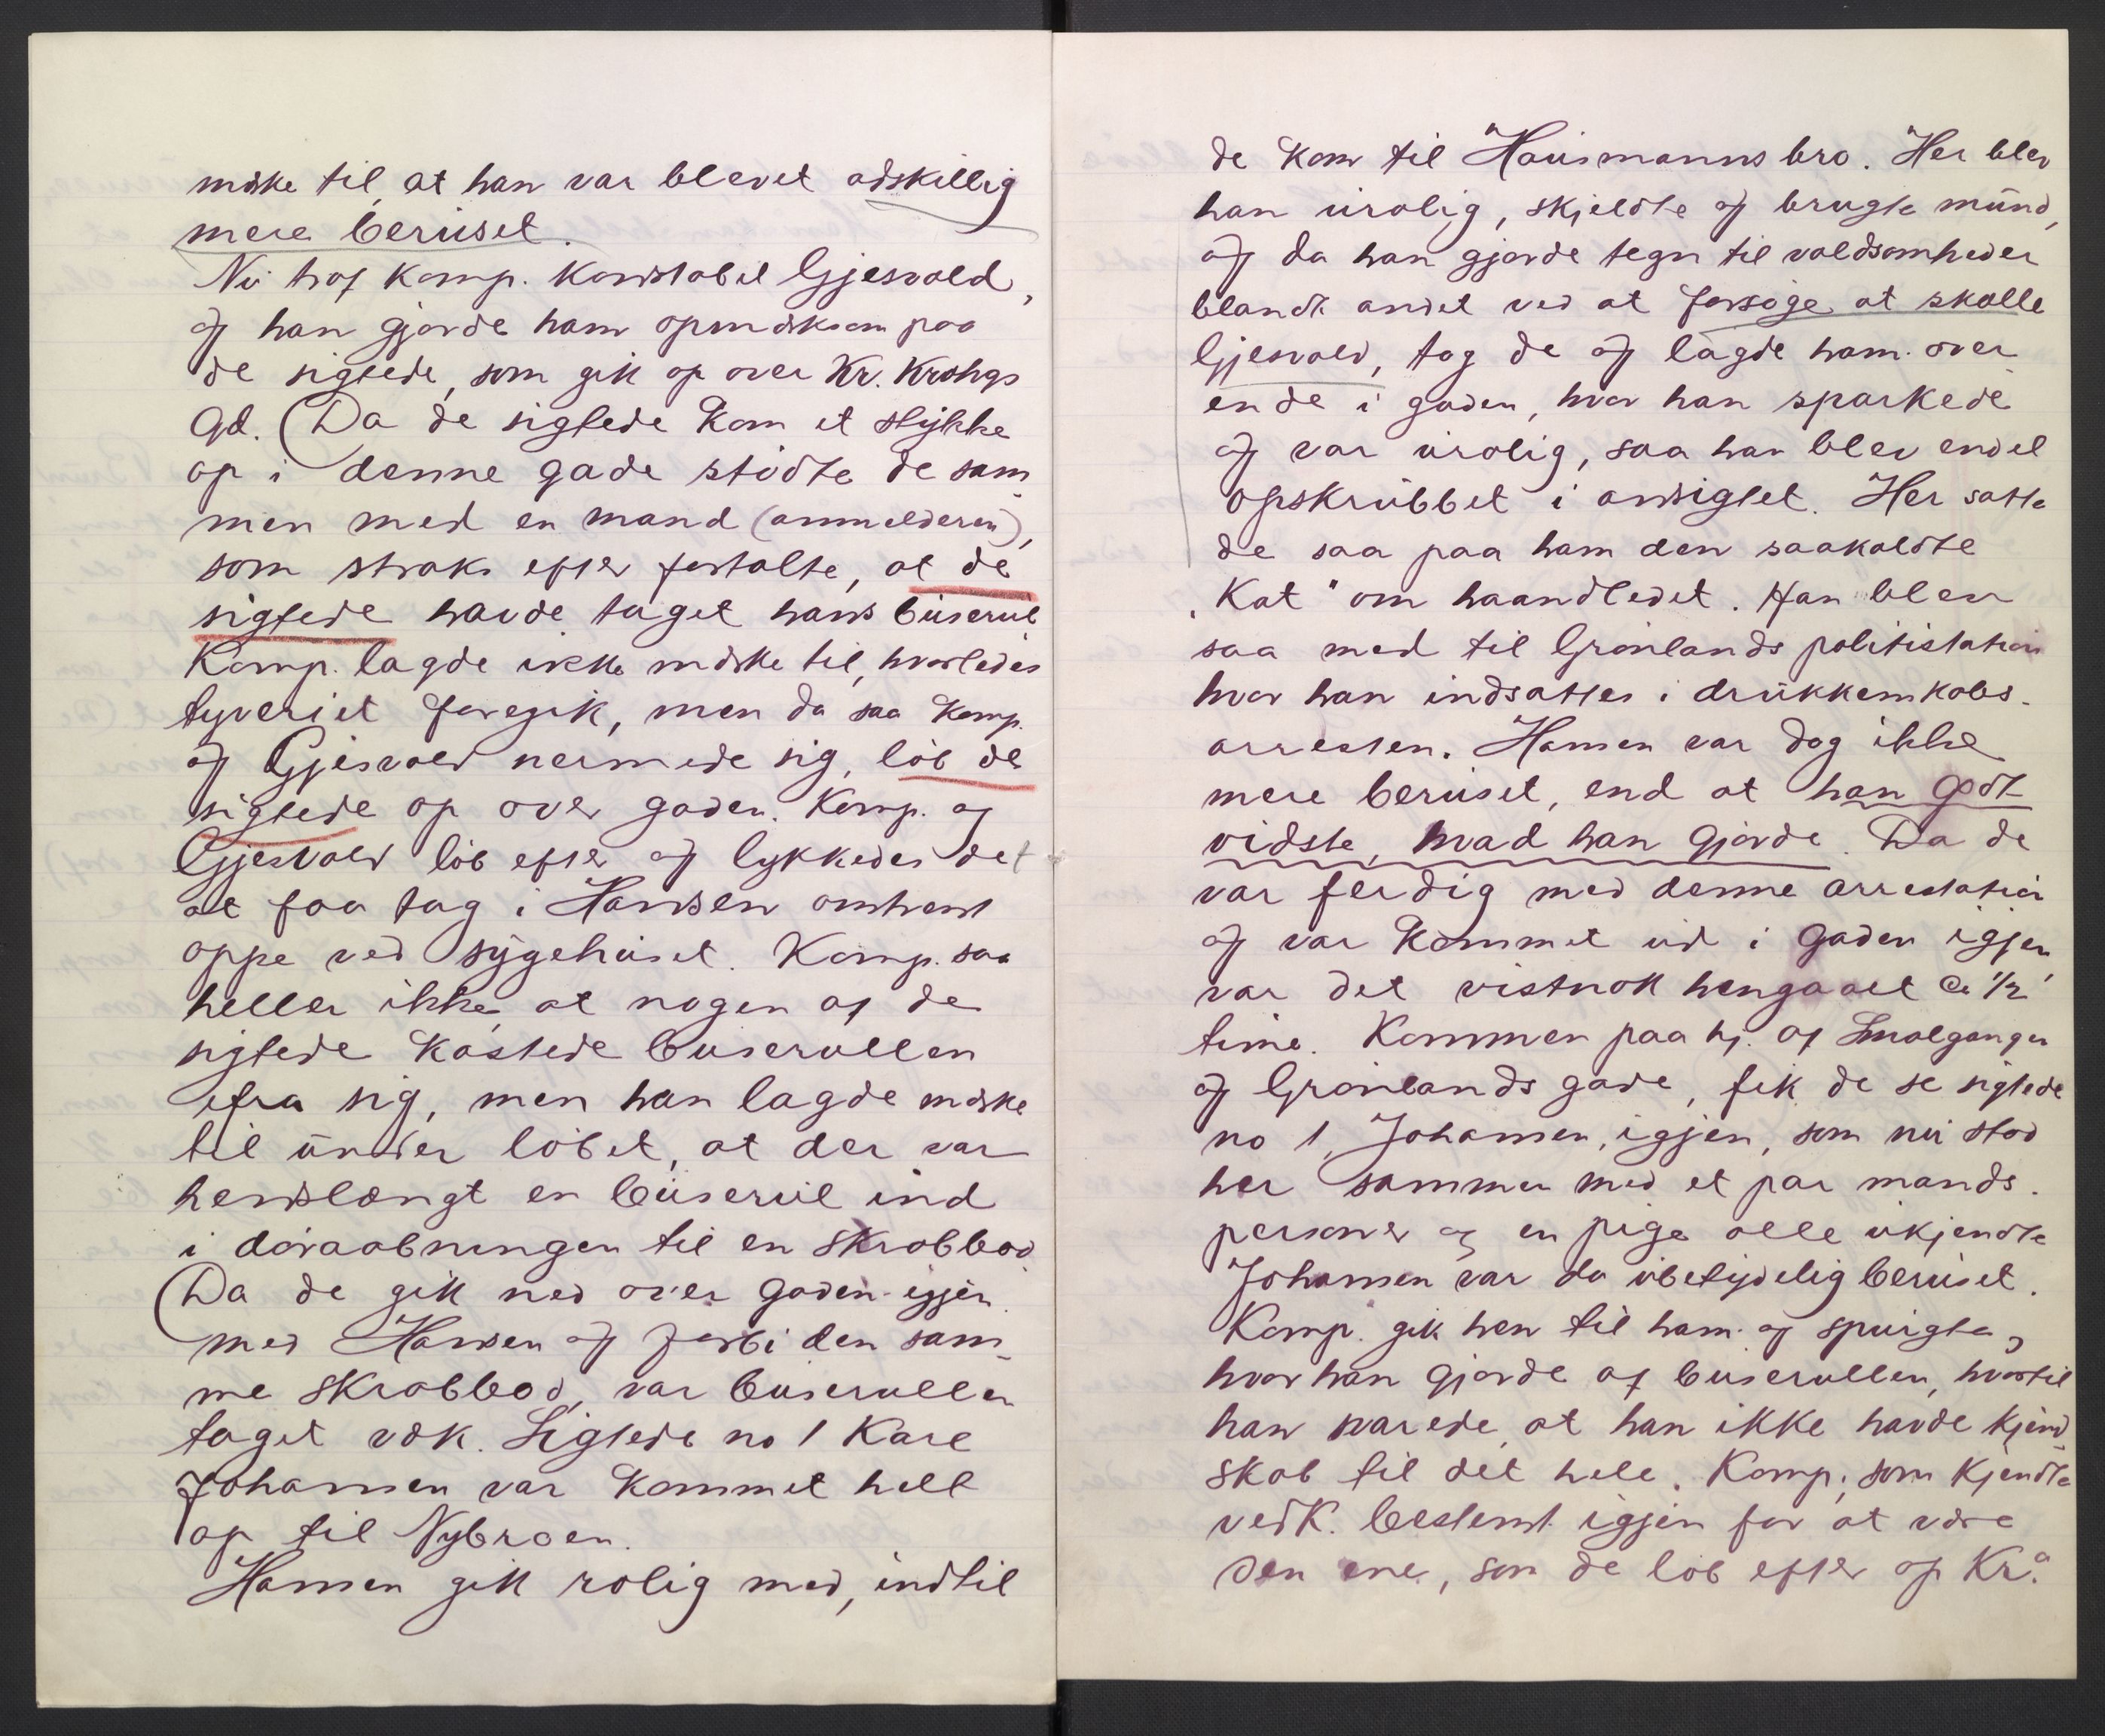 mærke til, at han var blevet adskillig
mere beruset.
Nu traf Komp. konstabel Gjesvold,
og han gjorde ham opmærksom paa
de sigtede, som gik op over Kr. Krohgs
Gd. (Da de sigtede kom et stykke
op i denne gade stødte de sam
men med en mand (anmelderen),
som straks efter fortalte, at de
sigtede havde taget hans buserul.
Komp. lagde ikke mærke til, hvorledes
tyveriet foregik, men da saa Komp.
og Gjesvold nermede sig, løb de
sigtede op over gaden. Komp. og
Gjesvold løb efter og lykkedes det
at faa tag i Hansen omtrent
oppe ved sygehuset. Komp. saa
heller ikke, at nogen af de
sigtede kastede buserullen
ifra sig, men han lagde mærke
til under løbet, at der var
henslængt en buserul ind
i døraabningen til en skrabbod.
(Da de gik ned over gaden igjen
med Hansen og forbi den sam-
me skrabbod, var buserullen
taget væk. Sigtede no 1 Karl
Johansen var kommet helt
op til Nybroen.
Hansen gik rolig med, indtil
de kom til Hausmanns bro. Her blev
han urolig, skjeldte og brugte mund,
og da han gjorde tegn til voldsomheder
blandt andet ved at forsøge at skalle
Gjesvold, tog de og lagde ham over
ende i gaden, hvor han sparkede
og var urolig, saa han blev endel
opskrubbet i ansigtet. Her satte
de saa paa ham den saakaldte
„Kat" om haandledet. Han blev
saa med til Grønlands politistation
hvor han indsattes i drukkenskabs-
arresten. Hansen var dog ikke
mere beruset, end at han godt
vidste, hvad han gjorde. Da de
var ferdig med denne arrestation
og var kommet ud i gaden igjen,
var det vistnok hengaaet ca 1/2
time. Kommen paa hj. af Smalgangen
og Grønlands gade, fik de se sigtede
no 1, Johansen, igjen, som nu stod
her sammen med et par mands-
personer og en pige alle ukjendte.
Johansen var da ubetydelig beruset.
Komp. gik hen til ham og spurgte,
hvor han gjorde af buserullen, hvortil
han svarede, at han ikke havde kjend
skab til det hele. Komp., som kjendte
vedk. bestemt igjen for at være
den ene, som de løb efter op Kr.